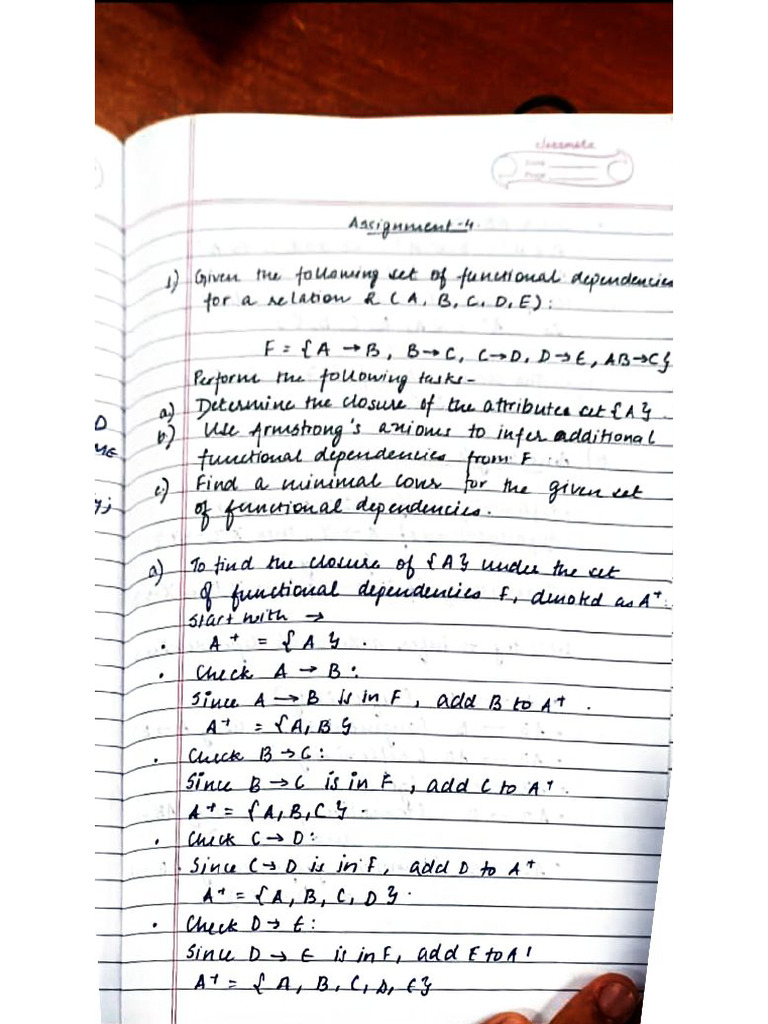 classmate
Date
Page
Assignment-4
1) Given the following set of functional dependencies
for a relation R (A, B, C, D, E):
F = {A → B, B → C, C → D, D → E, AB → C}
Perform the following tasks-
a) Determine the closure of the attributes set {A}.
b) Use Armstrong's axioms to infer additional
functional dependencies from F.
c) Find a minimal cover for the given set
of functional dependencies.
a) To find the closure of {A} under the set
of functional dependencies F, denoted as A+.
Start with →
• A+ = {A}.
• Check A → B:
Since A → B is in F, add B to A+.
A+ = {A, B}
• Check B → C:
Since B → C is in F, add C to A+.
A+ = {A, B, C}.
• Check C → D:
Since C → D is in F, add D to A+.
A+ = {A, B, C, D}.
• Check D → E:
Since D → E is in F, add E to A+
A+ = {A, B, C, D, E}